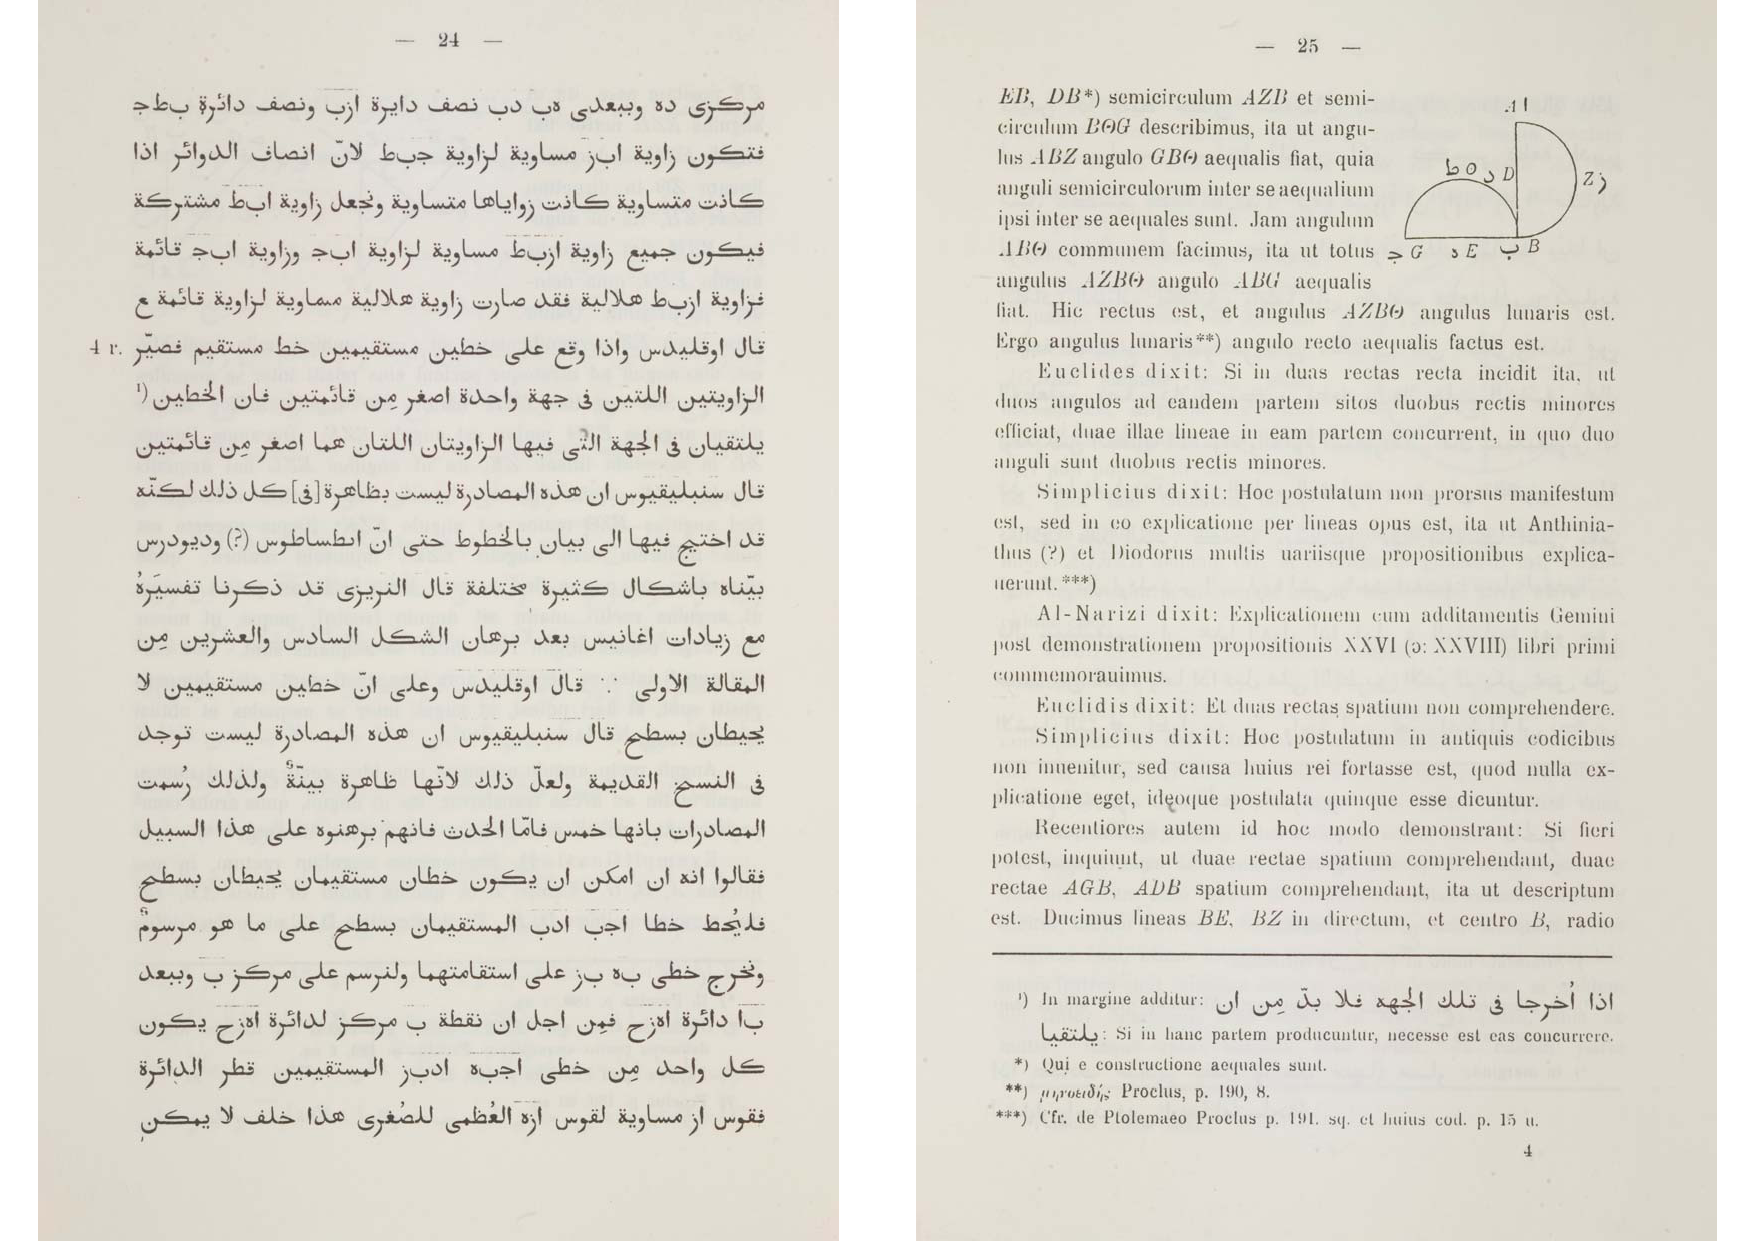 — 24 —
مركزى ده وببعدى هب دب نصف دايرة ازب ونصف دائرة بطج
فتكون زاوية ابز مساوية لزاوية جبط لانّ انصاف الدوائر اذا
كانت متساوية كانت زواياها متساوية ونجعل زاوية ابط مشتركة
فيكون جميع زاوية ازبط مساوية لزاوية ابج وزاوية ابج قائمة
فزاوية ازبط هلالية فقد صارت زاوية هلالية مساوية لزاوية قائمة ع
4 r. قال اوقليدس واذا وقع على خطين مستقيمين خط مستقيم فصيّر
الزاويتين اللتين فى جهة واحدة اصغر مِن قائمتين فان الخطين ¹)
يلتقيان فى الجهة التى فيها الزاويتان اللتان هما اصغر مِن قائمتين
قال سنبليقيوس ان هذه المصادرة ليست بظاهرة [فى] كل ذلك لكنّه
قد احتيج فيها الى بيان بالخطوط حتى انّ انطساطوس (?) وديودرس
بيّناه باشكال كثيرة مختلفة قال النريزى قد ذكرنا تفسيَرهُ
مع زيادات اغانيس بعد برهان الشكل السادس والعشرين مِن
المقالة الاولى ∵ قال اوقليدس وعلى انّ خطين مستقيمين لا
يحيطان بسطح قال سنبليقيوس ان هذه المصادرة ليست توجد
فى النسخ القديمة ولعلّ ذلك لانّها ظاهرة بينّةٌ ولذلك رُسمت
المصادرات بانها خمس فامّا الحدث فانهم برهنوه على هذا السبيل
فقالوا انه ان امكن ان يكون خطان مستقيمان يحيطان بسطح
فليُحط خطا اجب ادب المستقيمان بسطح على ما هو مرسومٌ
ونخرج خطى به بز على استقامتهما ولنرسم على مركز ب وببعد
با دائرة اهزح فمِن اجل ان نقطة ب مركز لدائرة اهزح يكون
كل واحد مِن خطى اجبه ادبز المستقيمين قطر الدائرة
فقوس از مساوية لقوس ازه العُظمى للصُغرى هذا خلف لا يمكن
— 25 —
EB, DB*) semicirculum AZB et semi-
circulum BΘG describimus, ita ut angu-
lus ABZ angulo GBΘ aequalis fiat, quia
anguli semicirculorum inter se aequalium
ipsi inter se aequales sunt. Jam angulum
ABΘ communem facimus, ita ut totus
angulus AZBΘ angulo ABG aequalis
A ا
ط Θ د D
Z ز
ج G ه E ب B
fiat. Hic rectus est, et angulus AZBΘ angulus lunaris est.
Ergo angulus lunaris**) angulo recto aequalis factus est.
Euclides dixit: Si in duas rectas recta incidit ita, ut
duos angulos ad eandem partem sitos duobus rectis minores
efficiat, duae illae lineae in eam partem concurrent, in quo duo
anguli sunt duobus rectis minores.
Simplicius dixit: Hoc postulatum non prorsus manifestum
est, sed in eo explicatione per lineas opus est, ita ut Anthinia-
thus (?) et Diodorus multis uariisque propositionibus explica-
uerunt.***)
Al-Narizi dixit: Explicationem cum additamentis Gemini
post demonstrationem propositionis XXVI (ɔ: XXVIII) libri primi
commemorauimus.
Euclidis dixit: Et duas rectas spatium non comprehendere.
Simplicius dixit: Hoc postulatum in antiquis codicibus
non inuenitur, sed causa huius rei fortasse est, quod nulla ex-
plicatione eget, ideoque postulata quinque esse dicuntur.
Recentiores autem id hoc modo demonstrant: Si fieri
potest, inquiunt, ut duae rectae spatium comprehendant, duae
rectae AGB, ADB spatium comprehendant, ita ut descriptum
est. Ducimus lineas BE, BZ in directum, et centro B, radio
¹) In margine additur: اذا اُخرجا فى تلك الجهه فلا بدّ مِن ان
يلتقيا: Si in hanc partem producuntur, necesse est eas concurrere.
*) Qui e constructione aequales sunt.
**) μηνοειδής Proclus, p. 190, 8.
***) Cfr. de Ptolemaeo Proclus p. 191. sq. et huius cod. p. 15 u.
4